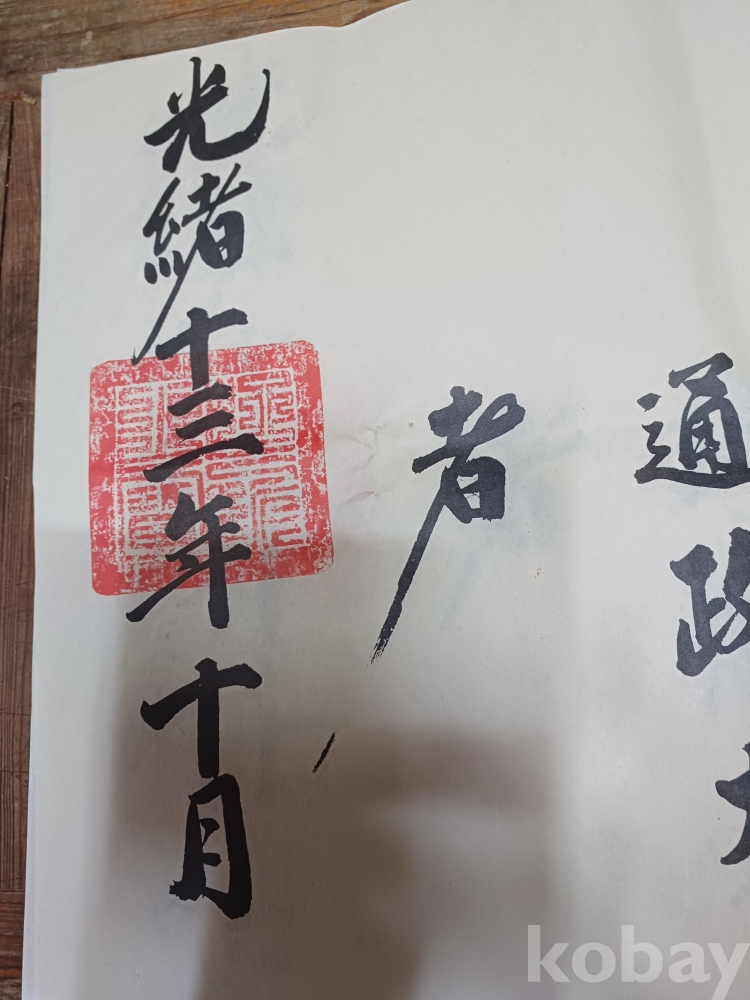 通政大
者
光緖十三年十月
kobay